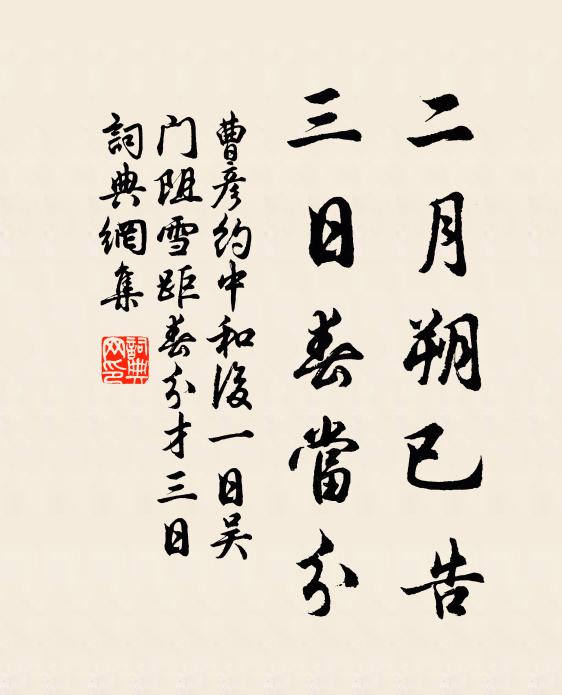 二月朔已告
三日春當分
曹彦約中和後一日吴
门阻雪距春分才三日
詞典網集
詞典
网印